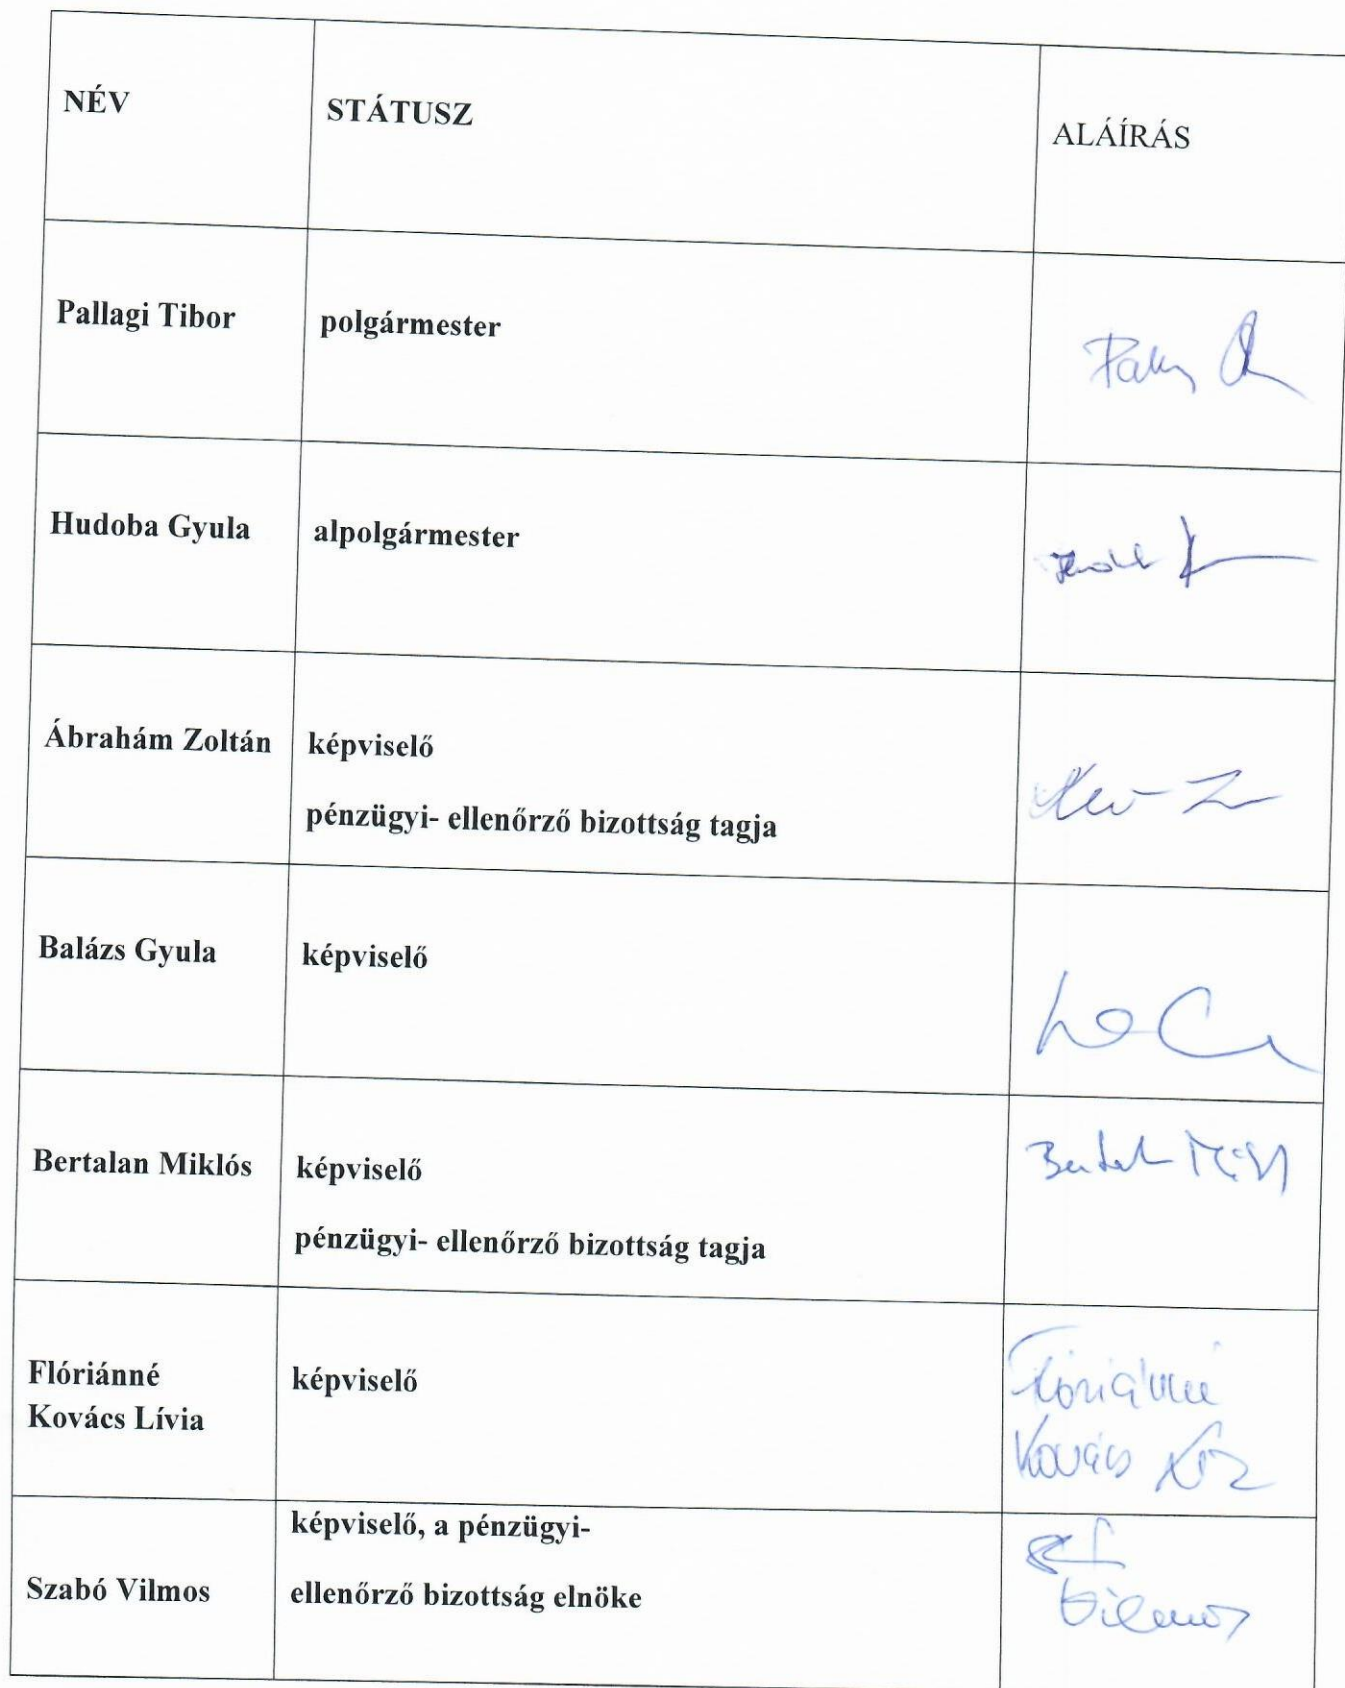 NÉV
STÁTUSZ
ALÁÍRÁS
Pallagi Tibor
polgármester
Hudoba Gyula
alpolgármester
Ábrahám Zoltán
képviselő
pénzügyi- ellenőrző bizottság tagja
Balázs Gyula
képviselő
Bertalan Miklós
képviselő
pénzügyi- ellenőrző bizottság tagja
Flóriánné
Kovács Lívia
képviselő
Flóriánné
Kovács
Szabó Vilmos
képviselő, a pénzügyi-
ellenőrző bizottság elnöke
Vilmos